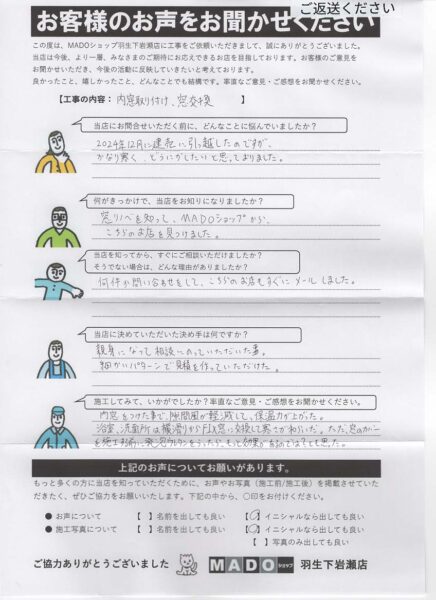 ご返送ください
お客様のお声をお聞かせください
この度は、MADOショップ羽生下岩瀬店に工事をご依頼いただきまして、誠にありがとうございました。
当店は今後、より一層、みなさまのご期待にお応えできるお店を目指しております。お客様のご意見を
お聞かせいただき、今後の活動に反映していきたいと考えております。
良かったこと、嬉しかったこと、どんなことでも結構です。率直なご意見・ご感想をお聞かせください。
【工事の内容：内窓取り付け、窓交換 】
当店にお問合せいただく前に、どんなことに悩んでいましたか？
2024年12月に建売に引っ越したのですが、
かなり寒く、どうにかしたいと思っておりました。
何がきっかけで、当店をお知りになりましたか？
窓リノベを知って、MADOショップから、
こちらのお店を見つけました。
当店を知ってから、すぐにご相談いただけましたか？
そうでない場合は、どんな理由がありましたか？
何件か問い合わせをして、こちらのお店もすぐにメールしました。
当店に決めていただいた決め手は何ですか？
親身になって相談にのっていただいた事。
細かいパターンで見積を作っていただけた。
施工してみて、いかがでしたか？率直なご意見・ご感想をお聞かせください。
内窓をつけた事で、隙間風が軽減して、保温力が上がった。
浴室、洗面所は横滑りからFIX窓に交換して寒さが和らいだ。ただ、窓のカバー
を施工する前に、発泡ウレタンをうったら、もっと効果があるのでは？とも思った。
上記のお声についてお願いがあります。
もっと多くの方に当店を知っていただくために、お声やお写真(施工前/施工後）を掲載させていた
だきたく、ぜひご協力をお願いいたします。下記の中から、〇印をお付けください。
● お声について 【 】名前を出しても良い 【〇】イニシャルなら出しても良い
● 施工写真について 【 】名前を出しても良い 【〇】イニシャルなら出しても良い
【 】写真のみ出しても良い
ご協力ありがとうございました MADOショップ 羽生下岩瀬店